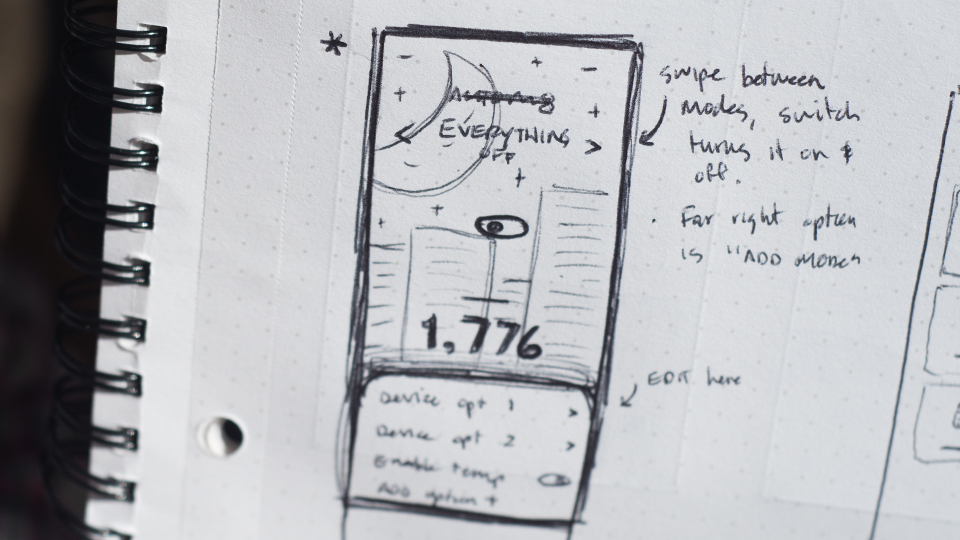 *
EVERYTHING
OFF
1,776
Device opt 1 >
Device opt 2 >
Enable temp
ADD option +
swipe between
modes, switch
turns it on &
off.
· Far right option
is "ADD MODE"
EDIT here